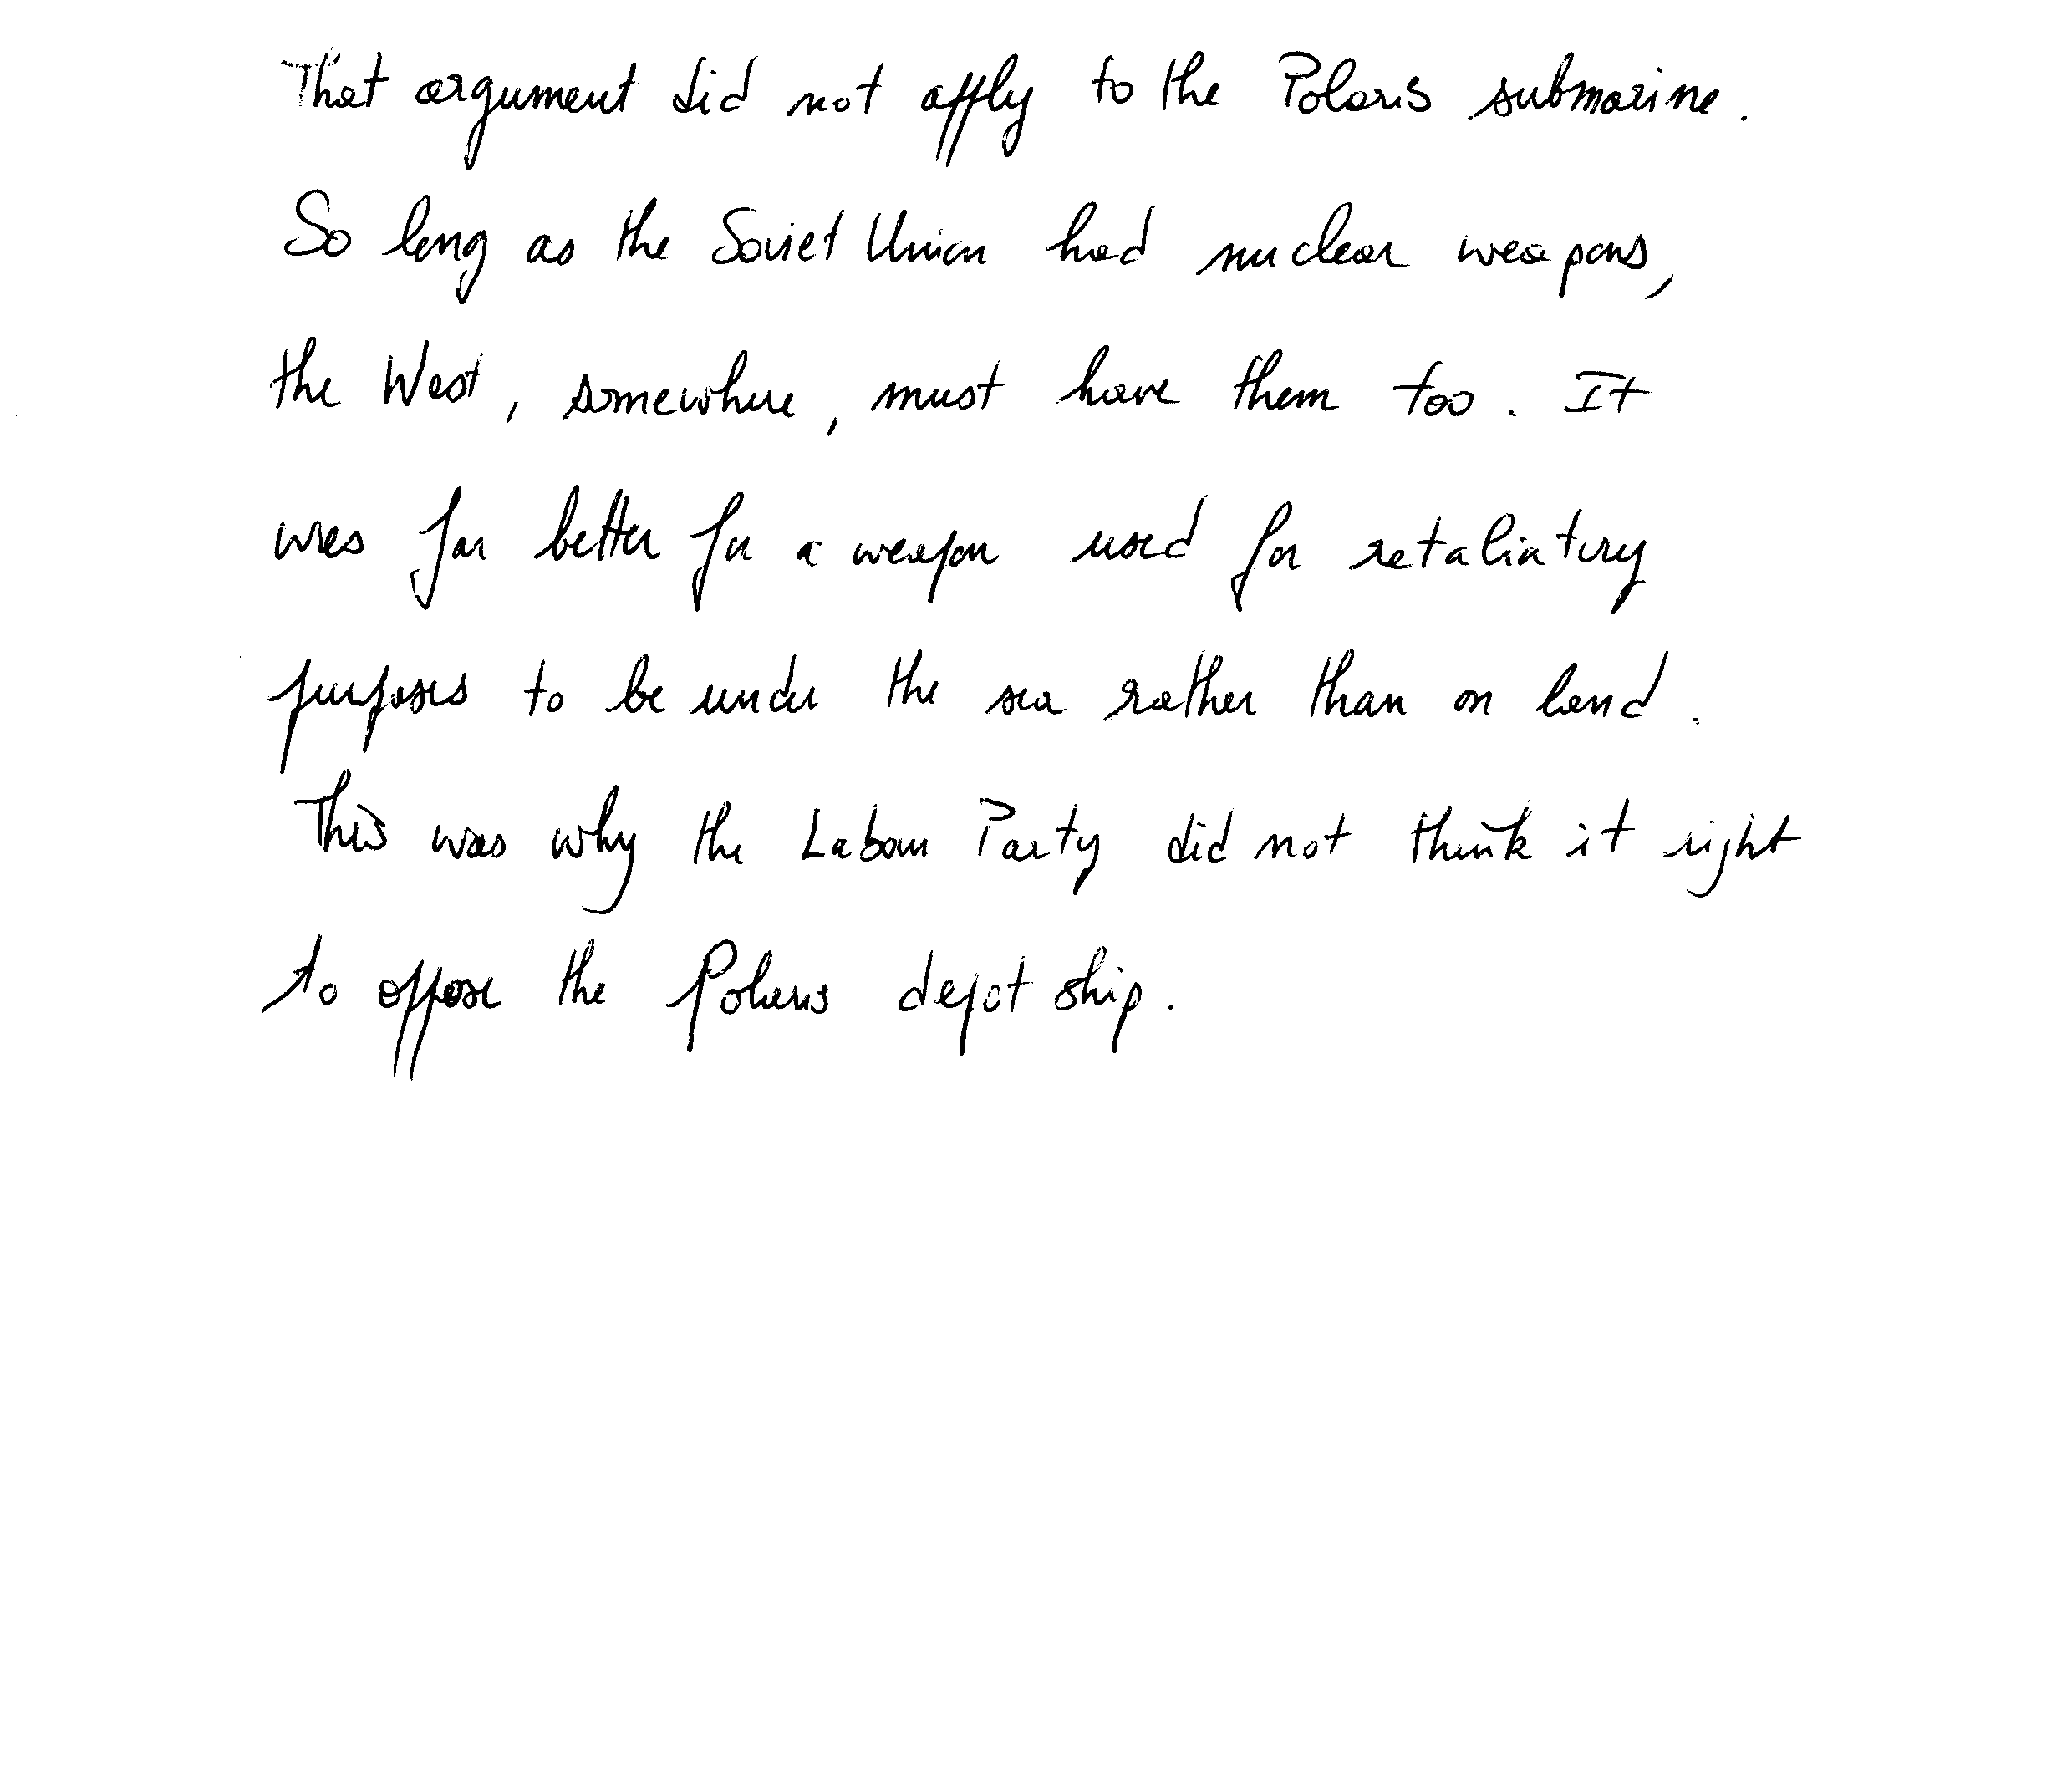 That argument did not apply to the Polaris submarine.
So long as the Soviet Union had nuclear weapons,
the West, somewhere, must have them too. It
was far better for a weapon used for retaliatory
purposes to be under the sea rather than on land.
This was why the Labour Party did not think it right
to oppose the Polaris depot ship.